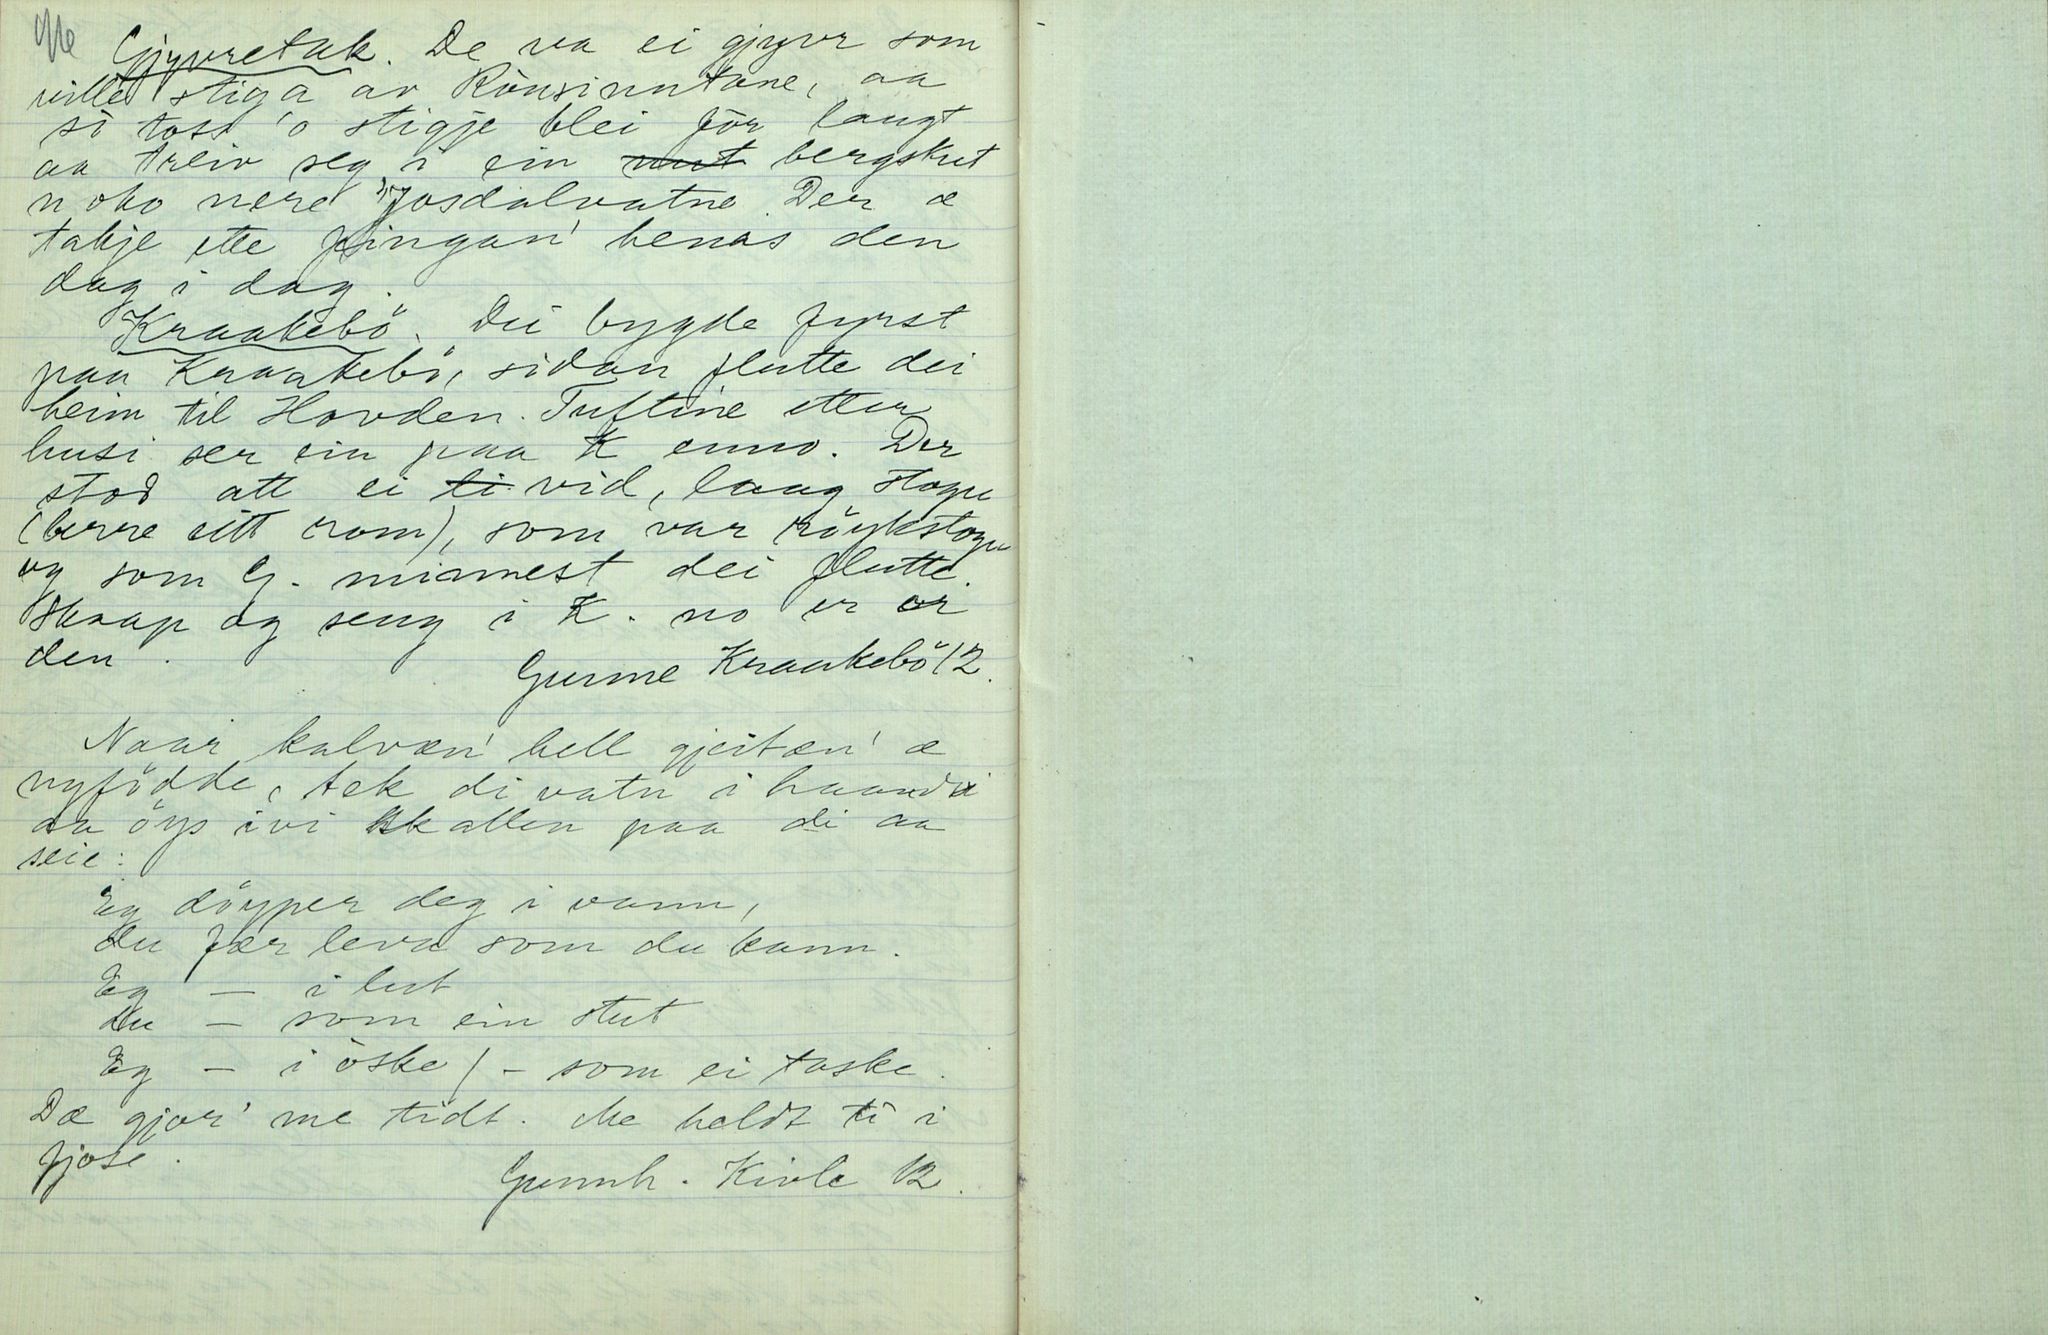 Gjyvretak. De va ei gjyvr som
ville stiga av Rònsinutane, aa
sò tosst 'o stigje blei fòr langt
aa treiv seg i ein nut bergskut
noko nere Josdalvatne. Der æ
takje ette fingan' henas den
dag i dag.
Kraakebö. Dei bygde fyrst
paa Kraakebö, sidan flutte dei
heim til Hovden. Tuftine etter
husi ser ein paa K enno. Der
stod att ei ti vid, laag stogu
(berre eitt rom), som var röykstogu
og som G. minnest dei flutte.
Skaap og seng i K. no er or
den.
Gunne Kraakebö 12.
Naar kalvæn' hell gjeitæn' æ
nyfödde, tek di vatn i haandi
aa öys ivi skallen paa di aa
seie:
Eg döyper deg i vann,
du fær leva som du kann.
Eg — i lut
du — som ein stut
Eg — i òske / – som ei taske.
Dæ gjor' me tidt. Me heldt ti i
fjose.
Gunnh. Kivle 12.